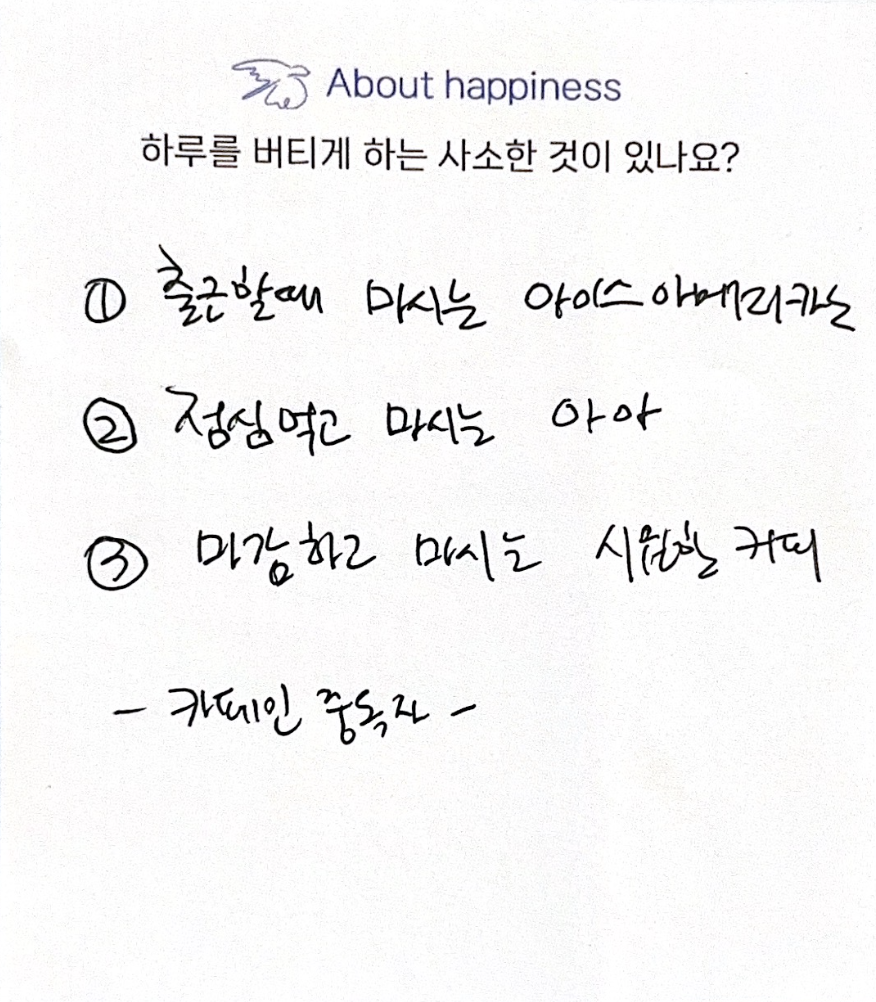 About happiness
하루를 버티게 하는 사소한 것이 있나요?
① 출근할때 마시는 아이스아메리카노
② 점심먹고 마시는 아아
③ 마감하고 마시는 시원한 커피
- 카페인 중독자 -